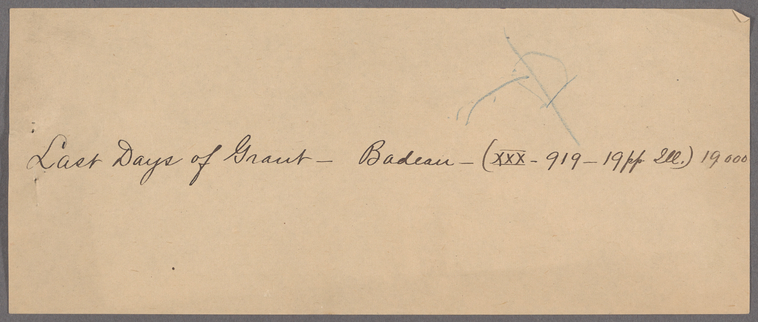 Last Days of Grant – Badeau – (XXX – 919 – 19 pp Ill.) 19000